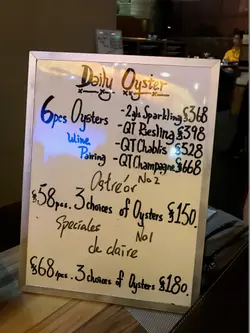 Daily Oyster
6pcs Oysters
Wine
Pairing
-2gls Sparkling $368
-QT Riesling $398
-QT Chablis $528
-QT Champagne $668
Ostréor No2
$58pcs. 3 choices of Oysters $150.
Speciales No1
de claire
$68/pcs. 3 choices of Oysters $180.